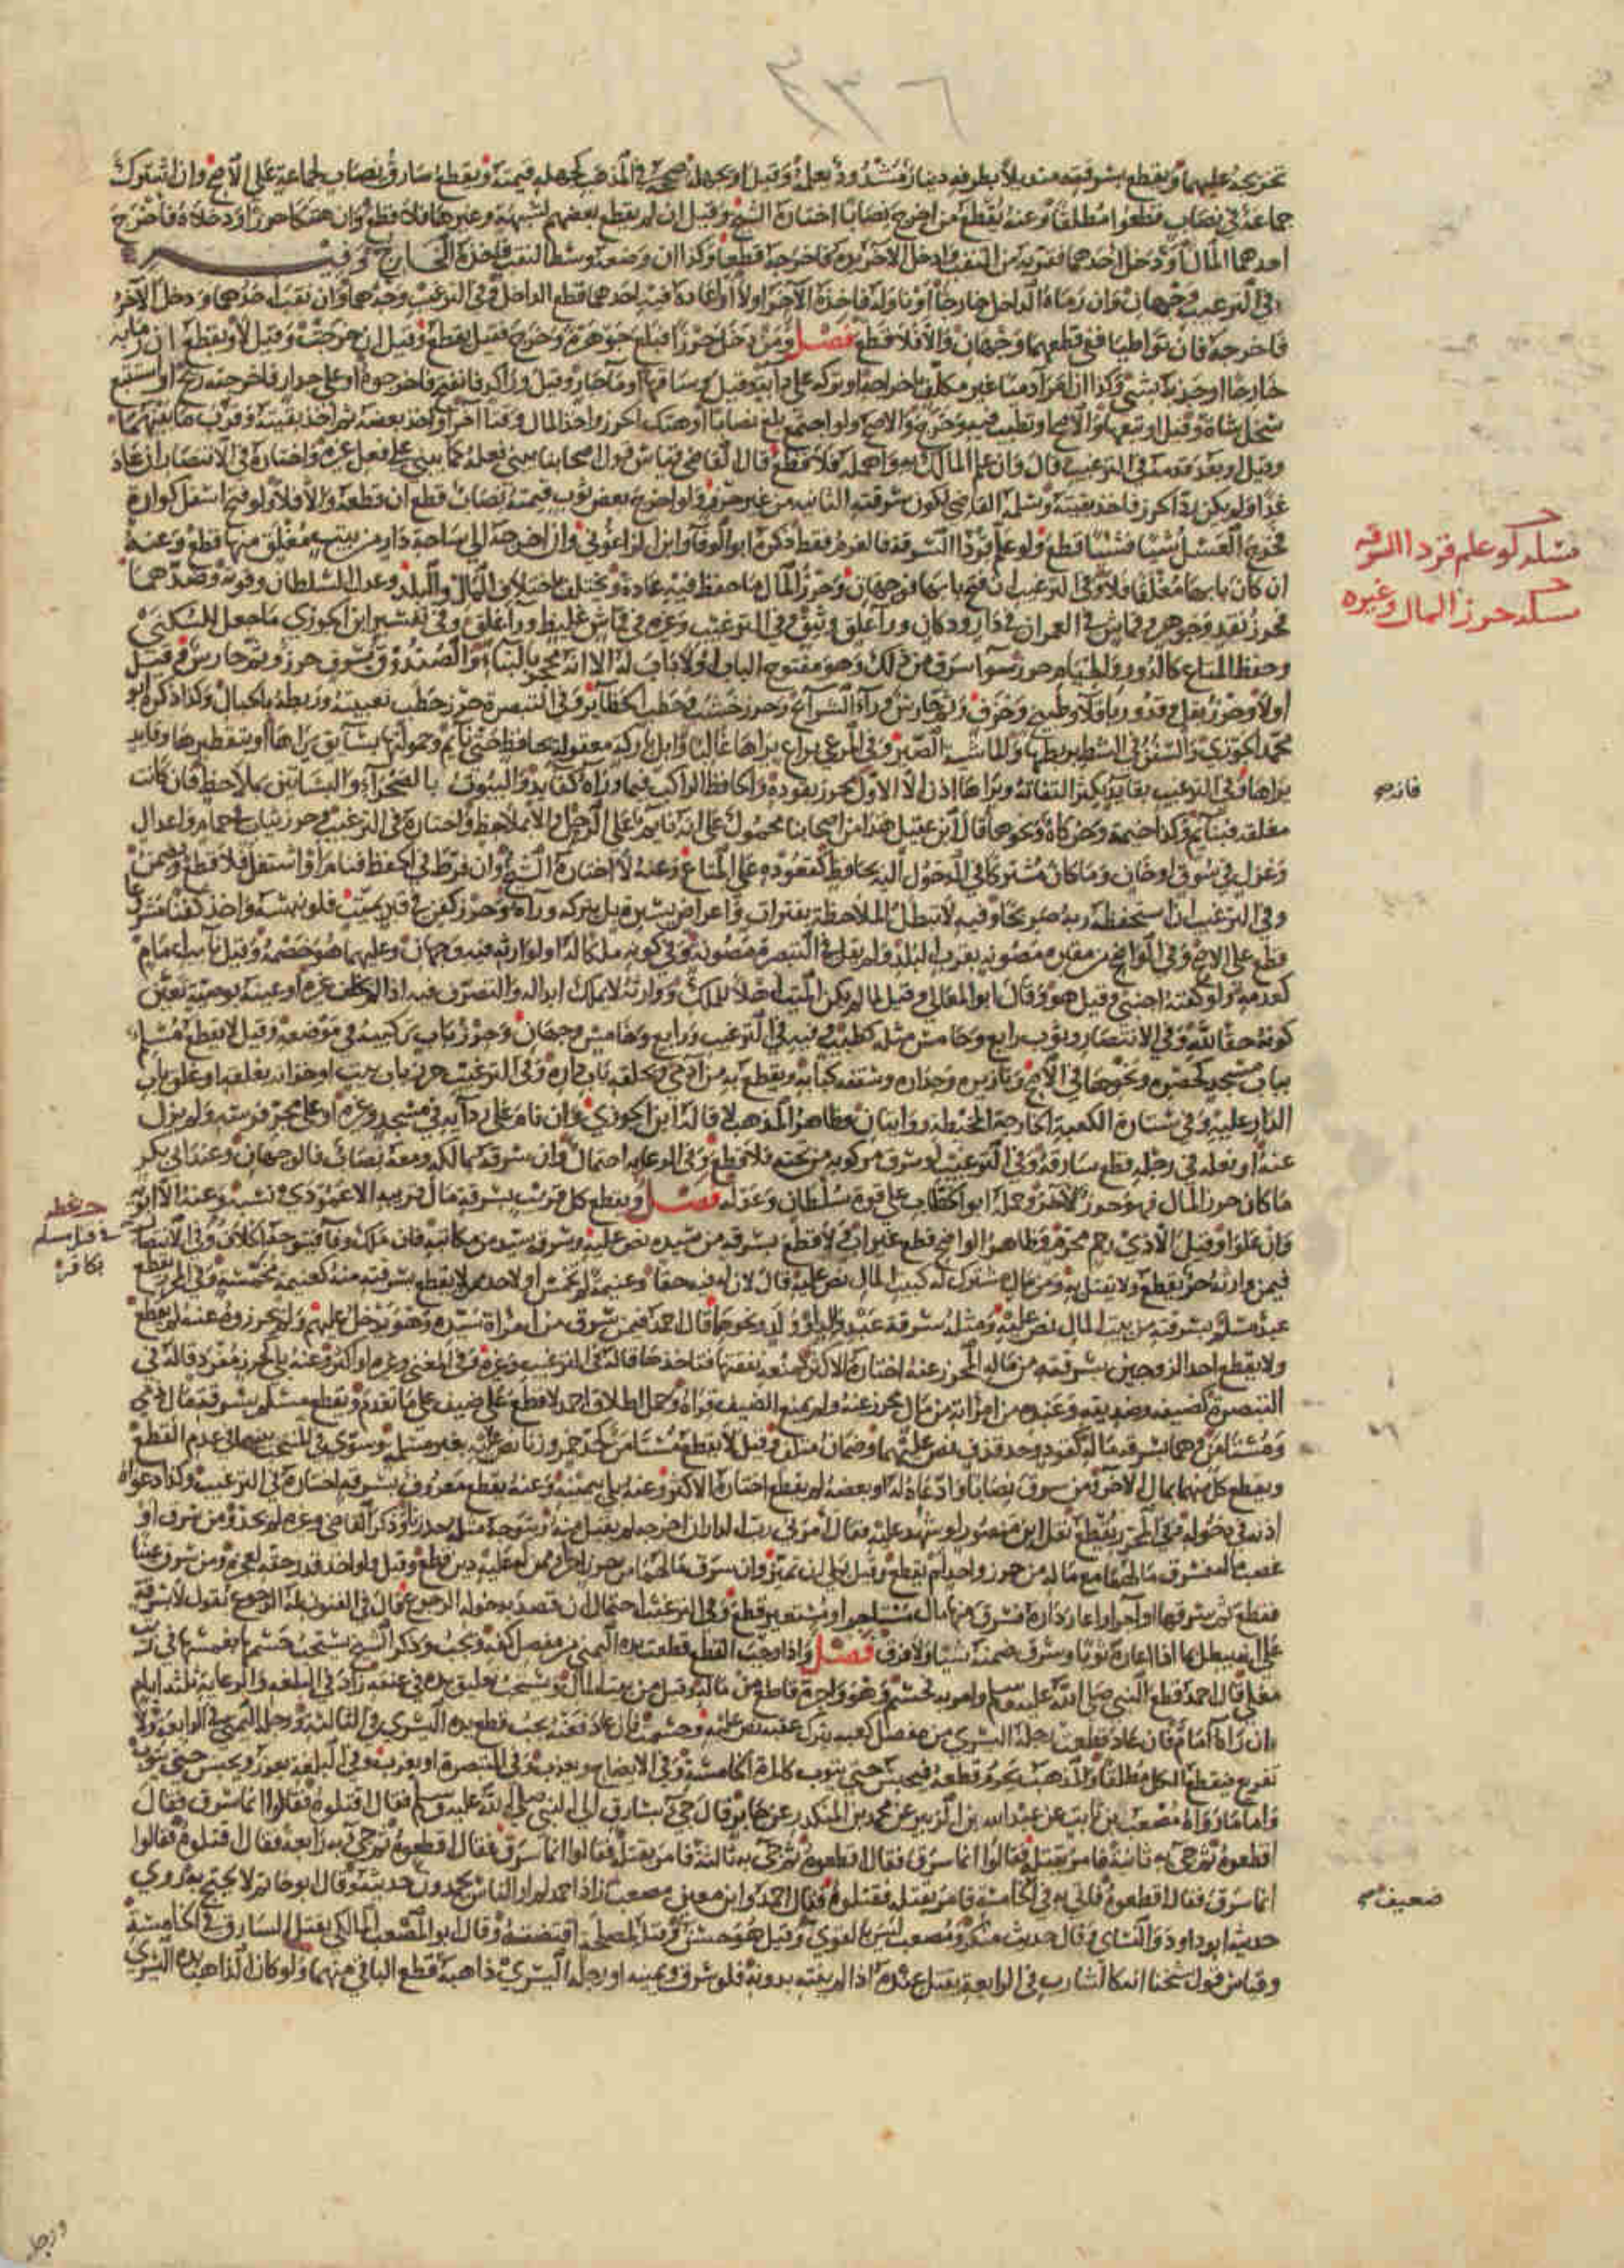 ٣٣٦
تخريجه عليهما ويقطع بسرقته منديلا بطرفه دينار مشدود يعلمه وقيل او يجهله صححه في المذهب كجهله قيمته ويقطع سارق نصاب لجماعة على الاصح وان اشترك
جماعة في نصاب قطعوا مطلقا وعنه يقطع من اخرج نصابا اختاره الشيخ وقيل ان لم يقطع بعضهم لشبهة وغيرها فلا قطع وان هتكا حرزا ودخلاه فاخرج
احدهما المال او دخل احدهما فقربه من النقب وادخل الاخر يده فاخرجه قطعا وكذا ان وضعه وسط النقب فاخذه الخارج وفيه
في الترغيب وجهان وان رماه الداخل خارجا او ناوله فاخذه الاخر اولا او اعاده فيه احدهما قطع الداخل وفي الترغيب وجه هما وان نقب احدهما ودخل الاخر
فاخرجه فان تواطيا ففي قطعهما وجهان والا فلا قطع فصل ومن دخل حرزا فبلع جوهرة وخرج فقيل يقطع وقيل ان خرجت وقيل لا ويقطع ان رمابه
خارجا او جذبه بشي وكذا ان امر ادميا غير مكلف باخراجه او تركه على دابة وقيل وساقها او ماء جار وقيل وراكد فانفجر فاخرجوه او على جدار فاخرجته ريح او استتبع
سخل شاة وقيل او تبعها والاصح او تطيب فيه وخرج والاصح ولو اجتمع بلغ نصابا او هتك الحرز واخذ المال وقتا اخر او اخذ بعضه ثم اخذ بقيته وقرب ما بينهما
وقيل او بعد قدمه في الترغيب قال وان علم المالك به واهمله فلا قطع قال القاضي قياس قول اصحابنا يبني فعله كما يبني على فعل غيره واختاره في الانتصار ان عاد
غدا ولم يكن رد الحرز فاخذ بقيته وسلمه القاضي لكون سرقته الثانية من غير حرز ولو اخرج بعض ثوب قيمته نصاب قطع ان قطعه والا فلا ولو فتح اسفل كوارة
فخرج العسل شيئا فشيئا قطع ولو علم قردا السرقة فالغرم فقط ذكره ابو الوفا وابن الزاغوني وان اخرجه الى ساحة دار من بيت مغلق منها قطع وعنه
ان كان بابها مغلقا فلا وفي الترغيب ان فتح بابها فوجهان وحرز المال ما حفظ فيه عادة ويختلف باختلاف المال والبلد وعدل السلطان وقوته وضدهما
فحرز نقد وجوهر وقماش في العمران في دار ودكان وراء غلق وثيق وفي الترغيب وغيره في قماش غليظ وراء غلق وفي تفسير ابن الجوزي ما جعل للسكنى
وحفظ المتاع كالدور والخيام حرز سواء سرق من ذلك وهو مفتوح الباب او لا باب له الا انه محجر بالبناء والصندوق بسوق حرز وثم حارس وقيل
اولا وحرز بقل وقدور باقلا وطبيخ وخزف وثم حارس وراء الشرائج وحرز خشب وحطب الحظائر وفي التبصرة حرز حطب تعبيته وربطه بالحبال وكذا ذكره ابو
محمد الجوزي والسفن في الشط بربطها والماشية الصير وفي المرعى براع يراها غالبا وابل باركة معقولة بحافظ حتى نائم وحمولتها بسائق يراها او بتقطيرها وقائد
يراها وفي الترغيب بقائد يكثر التفاته ويراها اذن الا الاول محرز بقوده والحافظ الراكب فيما وراءه كقائد والبيوت بالصحراء والبساتين بملاحظ فان كانت
مغلقة فبنائم وكذا خيمة وخركاة ونحوها قال ابن عقيل هذا من اصحابنا محمول على انه نائم على الرحل والا بملاحظ واختاره في الترغيب وحرز ثياب في حمام واعدال
وغزل في سوق او خان وما كان مشتركا في الدخول اليه بحافظ كقعوده على المتاع وعنه لا اختاره الشيخ وان فرط في الحفظ فنام او اشتغل فلا قطع ويضمن
وفي الترغيب ان استحفظه ربه صريحا وفيه لا تبطل الملاحظة بفترات واعراض يسير بل بتركه وراءه وحرز كفن في قبر بميت فلو نبشه واخذ كفنا مشروعا
قطع على الاصح وفي الواضح من مقبرة مصونة بقرب البلد ولم يقل في التبصرة مصونة وفي كونه ملكا له او لوارثه فيه وجهان وعليهما هو خصمه وقيل نائب امام
كعدمه ولو كفنه اجنبي وقيل هو وقال ابو المعالي وقيل لما لم يكن الميت اهلا للملك ووارثه لا يملك ابداله والتصرف فيه اذا لم يخلف غيره او عينه بوصية تعين
كونه حقا لله وفي الانتصار وثوب رابع وخامس مثله كطيب وفيه في الترغيب ورابع وخامس وجهان وحرز باب تركيبه في موضعه وقيل لا يقطع مسلم
بباب مسجد كحصره ونحوها في الاصح وتازيره وجداره وسقفه كبابه ويقطع به من ادمي وبحلقة باب داره وفي الترغيب حرز باب بيت او خزانة بغلقه او غلق باب
الدار عليه وفي ستارة الكعبة الخارجة المخيطة روايتان وظاهر المذهب لا قاله ابن الجوزي وان نام على ردائه في مسجد وغيره او على مجر فرسه ولم يزل
عنه او نعله في رجله قطع سارقه وفي الترغيب لو سرق مركوبه من تحته فلا قطع وفي الرعاية احتمال وان سرقه بمالكه ومعه نصاب فالوجهان وعند ابي بكر
ما كان حرز المال فهو حرز لاخر وحمله ابو الخطاب على قوة سلطان وعدله فصل ويقطع كل قريب بسرقة مال قريبه الا عمودي نسبه وعنه الا ابويه
وان علوا وقيل الا ذي رحم محرم وظاهر الواضح قطع غير اب ولا قطع بسرقته من سيده نص عليه وسرقة سيد من مكاتبه فان ملك وفاء فيتوجه الخلاف وفي الانتصار
فيمن وارثه حر يقطع ولا يقتل به ومن مال له شركة كبيت المال نص عليه قال لان له فيه حقا وغنيمة لم تخمس او لاحد ممن لا يقطع بسرقته منه كغنيمة مخمسة وفي المحرر يقطع
عبد مسلم بسرقته من بيت المال نص عليه ومثله سرقة عبد والد او ولد ونحوهما قال احمد فيمن سرق من امراة سيده وهو يدخل عليهم ولم يحرزوه عنه لم يقطع
ولا يقطع احد الزوجين بسرقته من ماله المحرز عنه اختاره الاكثر كمنعه نفقتها فتاخذها قاله في الترغيب وغيره وفي المغني وغيره او اكثر وعنه بلى كحرز مفرد قاله في
التبصرة كضيفه وصديقه وعبده من امراته من مال محرز عنه ولم يمنع الضيف قراه وحمل اطلاق احمد لا قطع على ضيف على ما تقدم ويقطع مسلم بسرقة مال ذمي
ومستامن وهما بسرقة ماله كقود وحد قذف نص عليهما وضمان متلف وقيل لا يقطع مستامن كحد خمر وزنا نص عليه بغير مسلمة وسوى في المنتخب بينهما في عدم القطع
ويقطع كل منهما بمال الاخر ومن سرق نصابا وادعاه له او بعضه لم يقطع اختاره الاكثر وعنه بلى بيمينه وعنه يقطع معروف بسرقة اختاره في الترغيب وكذا دعواه
اذنه في دخوله وفي المحرر يقطع نقل ابن منصور لو شهد عليه فقال امرني رب الدار ان اخرجه لم يقبل منه ويتوجه مثله حد زنا وذكر القاضي وغيره لم يحد ومن سرق او
غصب ماله فسرق مالهما مع ماله من حرز واحد لم يقطع وقيل بلى ان تميز وان سرق مالهما من حرز اخر او ممن له عليه دين قطع وقيل ولو اخذ قدر حقه لعجزه ومن سرق عينا
فقطع ثم سرقها او اجر او اعار داره فسرق منها مال مستاجر او مستعير قطع وفي الترغيب احتمال ان قصد بدخوله الرجوع وقال في الفنون له الرجوع بقول لا بسرقة
على انه يبطل بما اذا اعاره ثوبا وسرق ضمنه شيئا ولا فرق فصل واذا وجب القطع قطعت يده اليمنى من مفصل كفه ويجب وذكر الشيخ يستحب حسمها بغمسها في زيت
مغلي قال احمد قطع النبي صلى الله عليه وسلم وامر به فحسم وهو واجرة قاطع من ماله وقيل من بيت المال ويستحب تعليق يده في عنقه زاد في البلغة والرعاية ثلاثة ايام
ان راه الامام فان عاد قطعت رجله اليسرى من مفصل كعبه يترك عقبه نص عليه وحسمت فان عاد فعنه يجب قطع يده اليسرى في الثالثة ورجله اليمنى في الرابعة ولا
تفريع فيقطع الكل مطلقا والمذهب يحرم قطعه فيحبس حتى يتوب كالمرة الخامسة وفي الايضاح ويعذب وفي التبصرة او يغرب وفي البلغة يعزر ويحبس حتى يتوب
واما ما رواه مصعب بن ثابت عن عبد الله بن الزبير عن محمد بن المنكدر عن جابر قال جيء بسارق الى النبي صلى الله عليه وسلم فقال اقتلوه فقالوا انما سرق فقال
اقطعوه ثم جيء به ثانية فامر بقتله فقالوا انما سرق فقال اقطعوه ثم جيء به ثالثة فامر بقتله فقالوا انما سرق فقال اقطعوه ثم جيء به رابعة فقال اقتلوه فقالوا
انما سرق فقال اقطعوه فاتي به في الخامسة فامر بقتله فقتلوه فقال احمد وابن معين مصعب ضعيف زاد احمد لم ار الناس يحمدون حديثه وقال ابو حاتم لا يحتج به وروى
حديثه ابو داود والنسائي وقال حديث منكر ومصعب ليس بالقوي وقيل هو حسن وقتله لمصلحة اقتضته وقال ابو المصعب المالكي يقتل السارق في الخامسة
وقياس قول شيخنا انه كالشارب في الرابعة يقتل عنده اذا لم ينته بدونه فلو سرق ويمينه او رجله اليسرى ذاهبة قطع الباقي منهما ولو كان الذاهب يده اليسرى
مسئلة لو علم قردا السرقة
مسئلة حرز المال وغيره
ضعيف صح